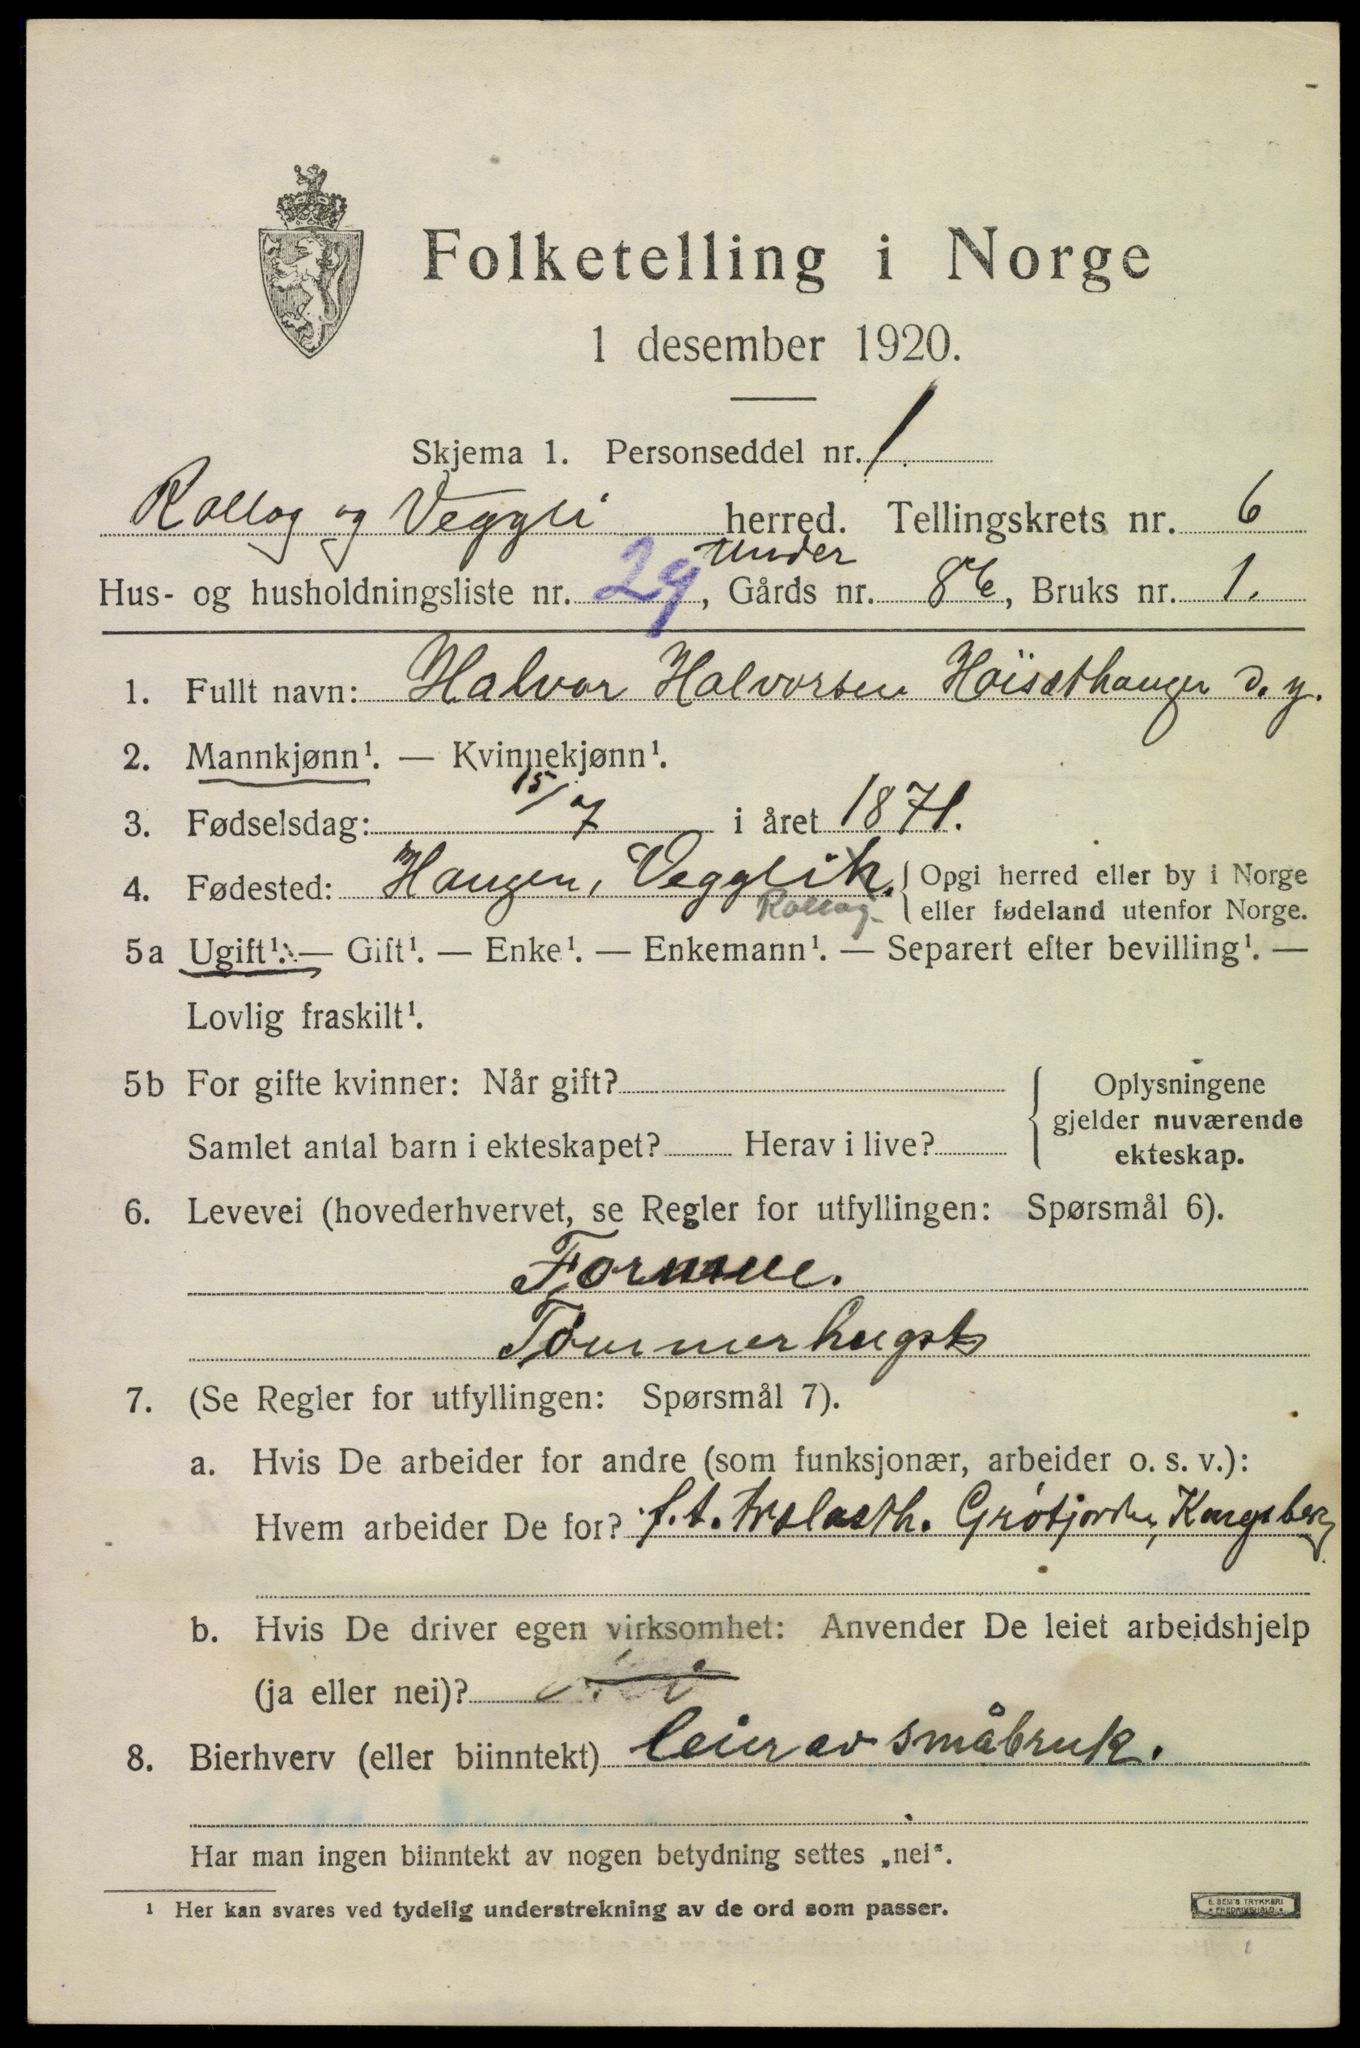 Folketelling i Norge
1 desember 1920.
Skjema 1. Personseddel nr. 1.
Rollag og Veggli herred. Tellingskrets nr. 6
under
Hus- og husholdningsliste nr. 29, Gårds nr. 86, Bruks nr. 1.
1. Fullt navn: Halvor Halvorsen Höisæthaugen d. y.
2. Mannkjønn¹. — Kvinnekjønn¹.
3. Fødselsdag: 15/7 i året 1871.
4. Fødested: Haugen, Veggli h. { Opgi herred eller by i Norge
Rollag. eller fødeland utenfor Norge.
5a Ugift¹. — Gift¹. — Enke¹. — Enkemann¹. — Separert efter bevilling¹. —
Lovlig fraskilt¹.
5b For gifte kvinner: Når gift? { Oplysningene
gjelder nuværende
Samlet antal barn i ekteskapet? Herav i live? ekteskap.
6. Levevei (hovederhvervet, se Regler for utfyllingen: Spørsmål 6).
Formue.
Tømmerhugst
7. (Se Regler for utfyllingen: Spørsmål 7).
a. Hvis De arbeider for andre (som funksjonær, arbeider o. s. v.):
Hvem arbeider De for? f. t. trælasth. Grøtjorden, Kongsberg
b. Hvis De driver egen virksomhet: Anvender De leiet arbeidshjelp
(ja eller nei)? Nei
8. Bierhverv (eller biinntekt) leier av småbruk.
Har man ingen biinntekt av nogen betydning settes „nei“.
¹ Her kan svares ved tydelig understrekning av de ord som passer.
E. SEM'S TRYKKERI
FREDRIKSHALD